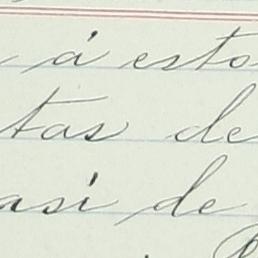 á esto
tas de
asi de